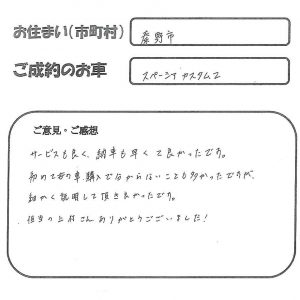 お住まい(市町村)
秦野市
ご成約のお車
スペーシアカスタムZ
ご意見・ご感想
サービスも良く、納車も早くて良かったです。
初めての車購入で分からないことも多かったですが、
細かく説明して頂き良かったです。
担当の上村さんありがとうございました!